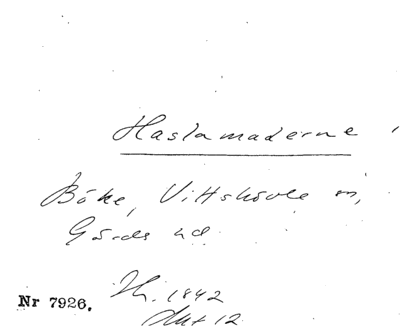 Haslamaderne
Böke, Vittskövle sn,
Gärds hd
1842
Nr 7926.
Akt 12